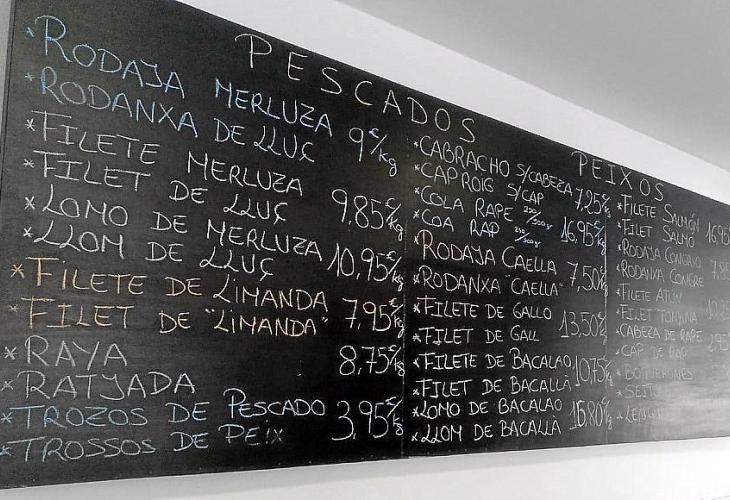 PESCADOS
*RODAJA MERLUZA
*RODANXA DE LLUÇ 9€/kg
*FILETE MERLUZA
*FILET DE LLUÇ 9,85€/kg
*LOMO DE MERLUZA
*LLOM DE LLUÇ 10,95€/kg
*FILETE DE LIMANDA
*FILET DE "LIMANDA" 7,95€/kg
*RAYA 8,75€/kg
*RATJADA
*TROZOS DE PESCADO 3,95€/kg
*TROSSOS DE PEIX
PEIXOS
*CABRACHO S/CABEZA 7,25€/kg
*CAP ROIG S/CAP
*COLA RAPE 16,95€/kg
*COA RAP
*RODAJA CAELLA 7,50€/kg
*RODANXA "CAELLA"
*FILETE DE GALLO 13,50€/kg
*FILET DE GALL
*FILETE DE BACALAO 10,75€/kg
*FILET DE BACALLÀ
*LOMO DE BACALAO 15,80€/kg
*LLOM DE BACALLÀ
*FILETE SALMÓN
*FILET SALMÓ 16,95
*RODAJA CONGRIO
*RODANXA CONGRE
*FILETE ATÚN
*FILET TONYINA
*CABEZA DE RAPE
*CAP DE RAP